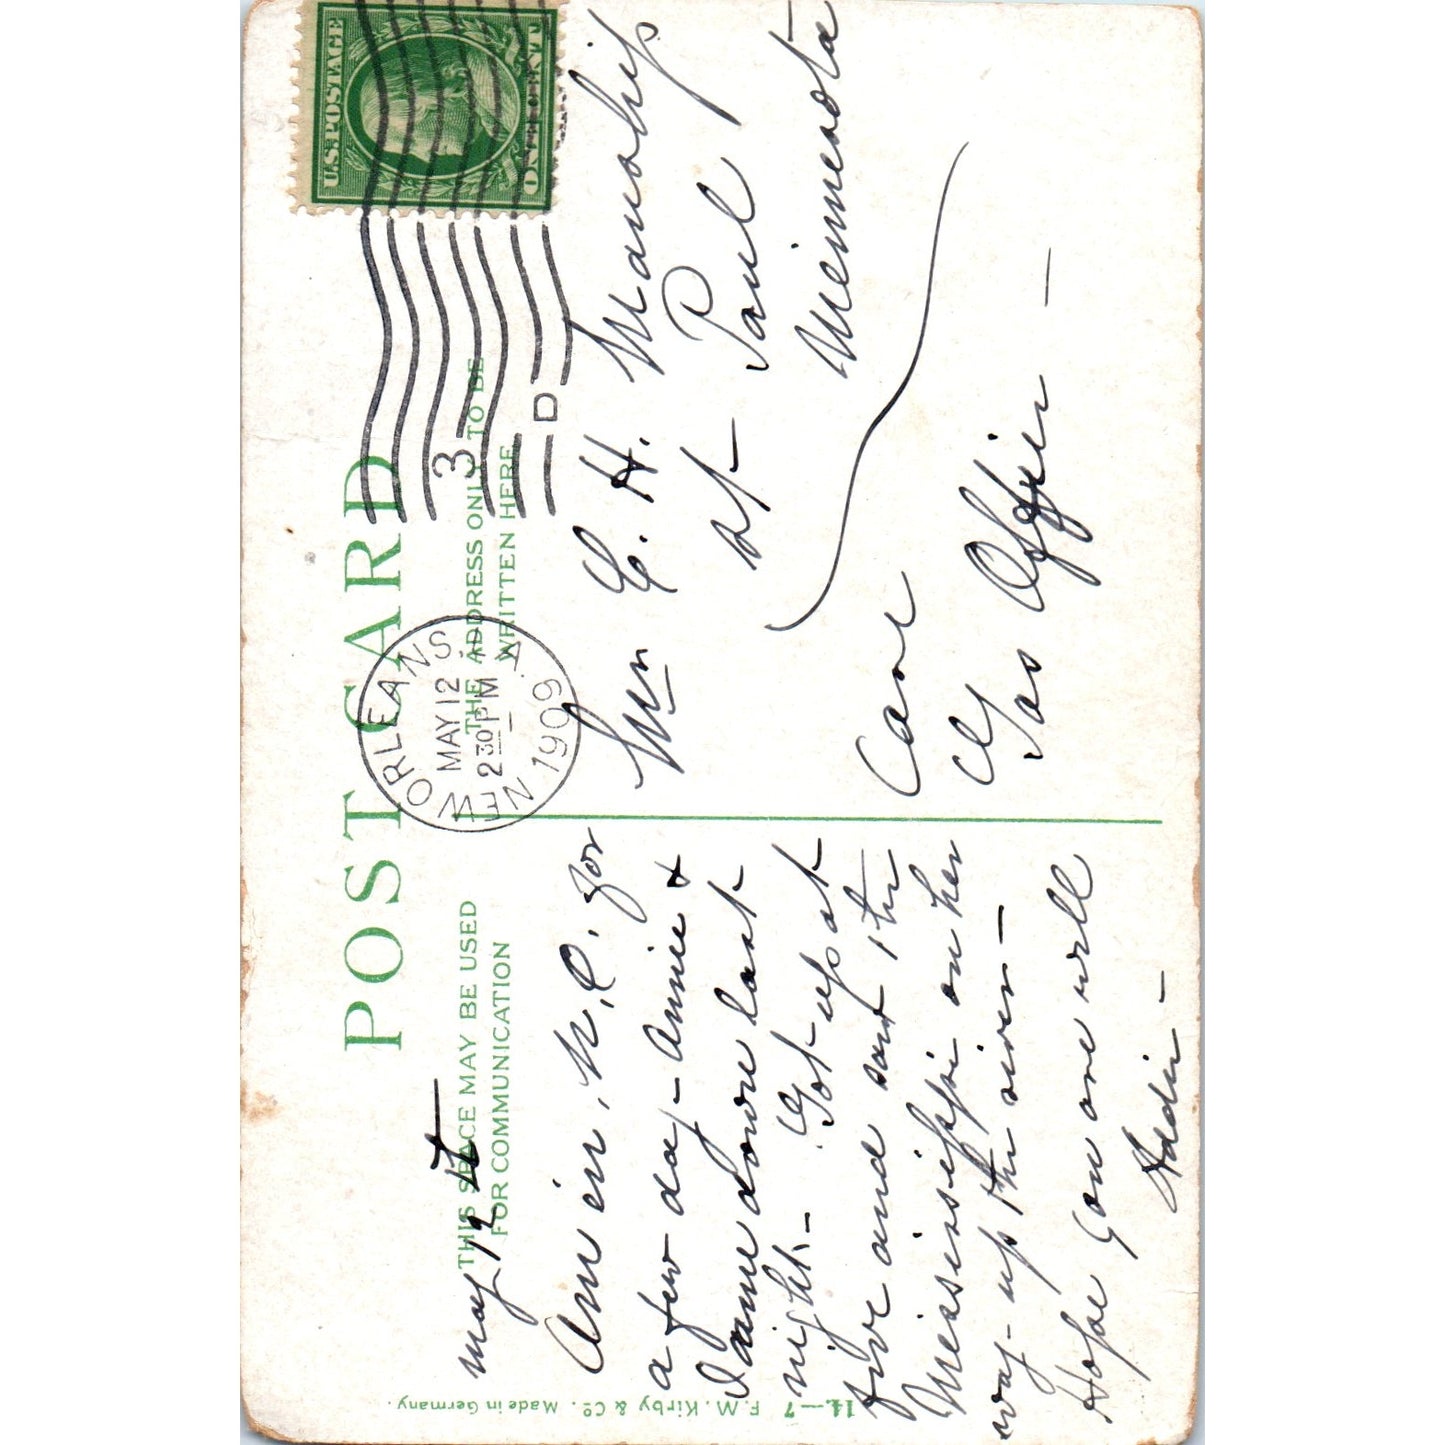 POST CARD
THIS SPACE MAY BE USED
FOR COMMUNICATION
THE ADDRESS ONLY TO BE
WRITTEN HERE
U.S. POSTAGE
ONE CENT
NEW ORLEANS
MAY 12
2 30 PM
1909
3
D
May 12
Am in N.O. for
a few day - Annie &
I came down last
night - Got up at
five and saw the
Mississippi on her
way - up the river -
Hope you are well
Addie -
Wm E. H. Manship
St Paul
Minnesota
Care
Gas Office -
14.—7 F. M. Kirby & Co. Made in Germany.